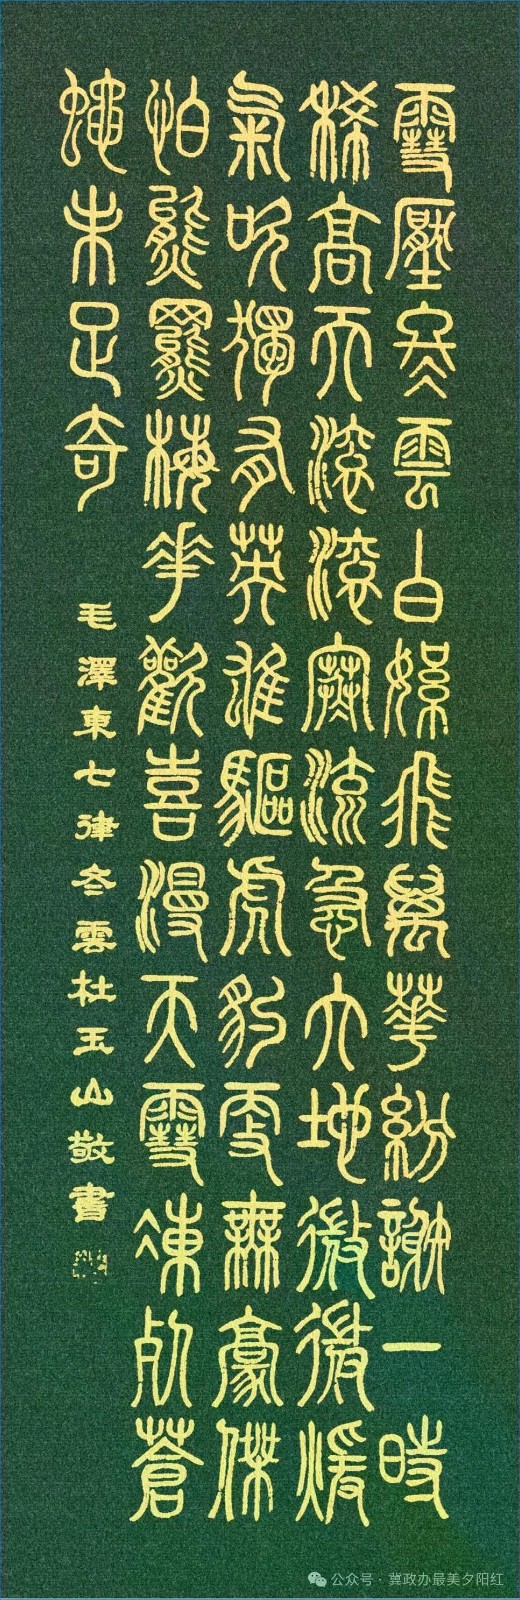 雪壓冬雲白絮飛萬華紛謝一時
稀高天滾滾寒流急大地微微暖
氣吹獨有英雄驅虎豹更無豪傑
怕熊羆梅花歡喜漫天雪凍死蒼
蠅未足奇
毛澤東七律冬雲杜玉山敬書
公众号 · 冀政办最美夕阳红